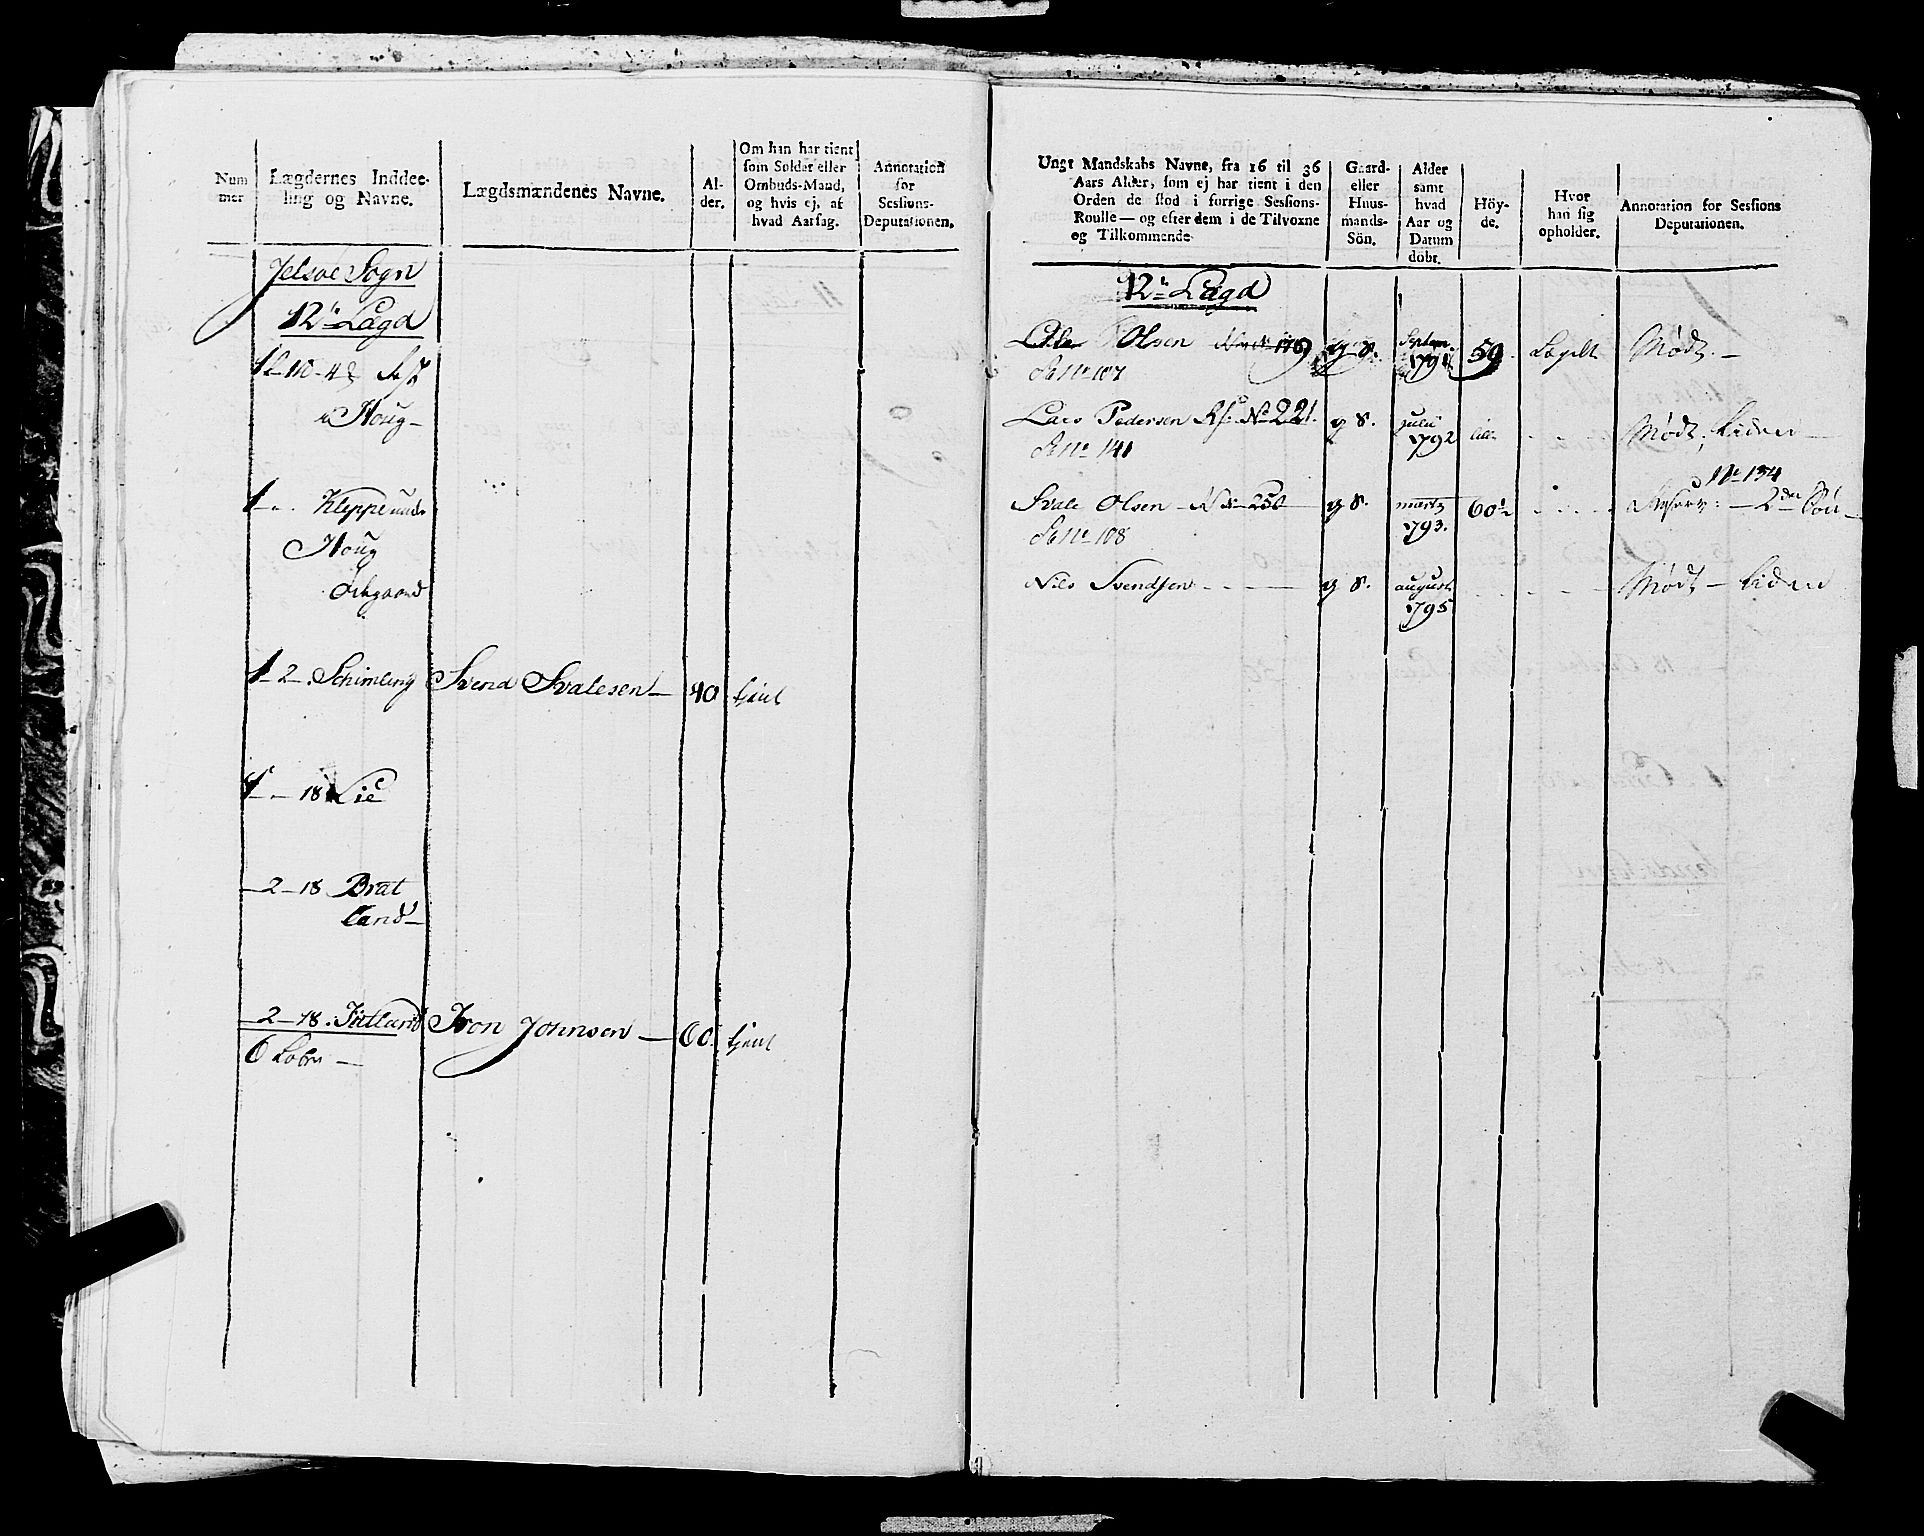 Num
mer
Lægdernes Inddee-
ling og Navne.
Lægdsmændenes Navne.
Al-
der.
Om han har tient
som Soldat eller
Ombuds-Mand,
og hvis ej, af
hvad Aarsag.
Annotation
for
Sessions-
Deputationen.
Jelsøe Sogn
12te Lægd
Houg
1 Kleppe
Houg
1 - 2 - Schimling Svend Svalesen - 40 tjent
1 - 18 Lie
2 - 18 Brat
land
2 - 18. Jutland Iven Johnsen - 60 tjent
6
Ungt Mandskabs Navne, fra 16 til 36
Aars Alder, som ej har tient i den
Orden de stod i forrige Sessions-
Roulle — og efter dem i de Tilvoxne
og Tilkommende
Gaard-
eller
Huus-
mands-
Sön.
Alder
samt
hvad
Aar og
Datum
döbt.
Höy-
de.
Hvor
han sig
opholder.
Annotation for Sessions
Deputationen.
12te Lægd
Ole Olsen g S. Septem. 1791 59 Lægdet Mødt. -
No 107
Lars Pedersen No 221. g S. julii 1792 Mødt, liden
No 141
Svale Olsen 250 g S. marts 1793. 60½ No 134 2den
No 108
Nils Svendsen g S. august 1795 Mødt - liden